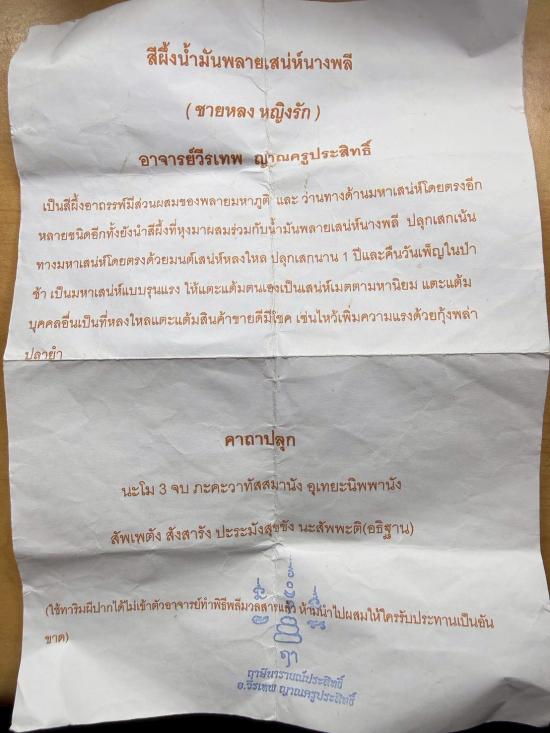 สีผึ้งน้ำมันพลายเสน่ห์นางพลี
( ชายหลง หญิงรัก )
อาจารย์วีรเทพ ญาณครูประสิทธิ์
เป็นสีผึ้งอาถรรพ์มีส่วนผสมของพลายมหาภูติ และ ว่านทางด้านมหาเสน่ห์โดยตรงอีก
หลายชนิดอีกทั้งยังนำสีผึ้งที่หุงมาผสมร่วมกับน้ำมันพลายเสน่ห์นางพลี ปลุกเสกเน้น
ทางมหาเสน่ห์โดยตรงด้วยมนต์เสน่ห์หลงใหล ปลุกเสกนาน 1 ปีและคืนวันเพ็ญในป่า
ช้า เป็นมหาเสน่ห์แบบรุนแรง ให้แตะแต้มตนเองเป็นเสน่ห์เมตตามหานิยม แตะแต้ม
บุคคลอื่นเป็นที่หลงใหลแตะแต้มสินค้าขายดีมีโชค เซ่นไหว้เพิ่มความแรงด้วยกุ้งพล่า
ปลายำ
คาถาปลุก
นะโม 3 จบ ภะคะวาทัสสมานัง อุเทยะนิพพานัง
สัพเพตัง สังสารัง ปะระมังสุขขัง นะสัพพะติ(อธิฐาน)
(ใช้ทาริมผีปากได้ไม่เข้าตัวอาจารย์ทำพิธีพลีมวลสารแล้ว ห้ามนำไปผสมให้ใครรับประทานเป็นอัน
ขาด)
ฤาษีนารายณ์ประสิทธิ์
อ.วีรเทพ ญาณครูประสิทธิ์